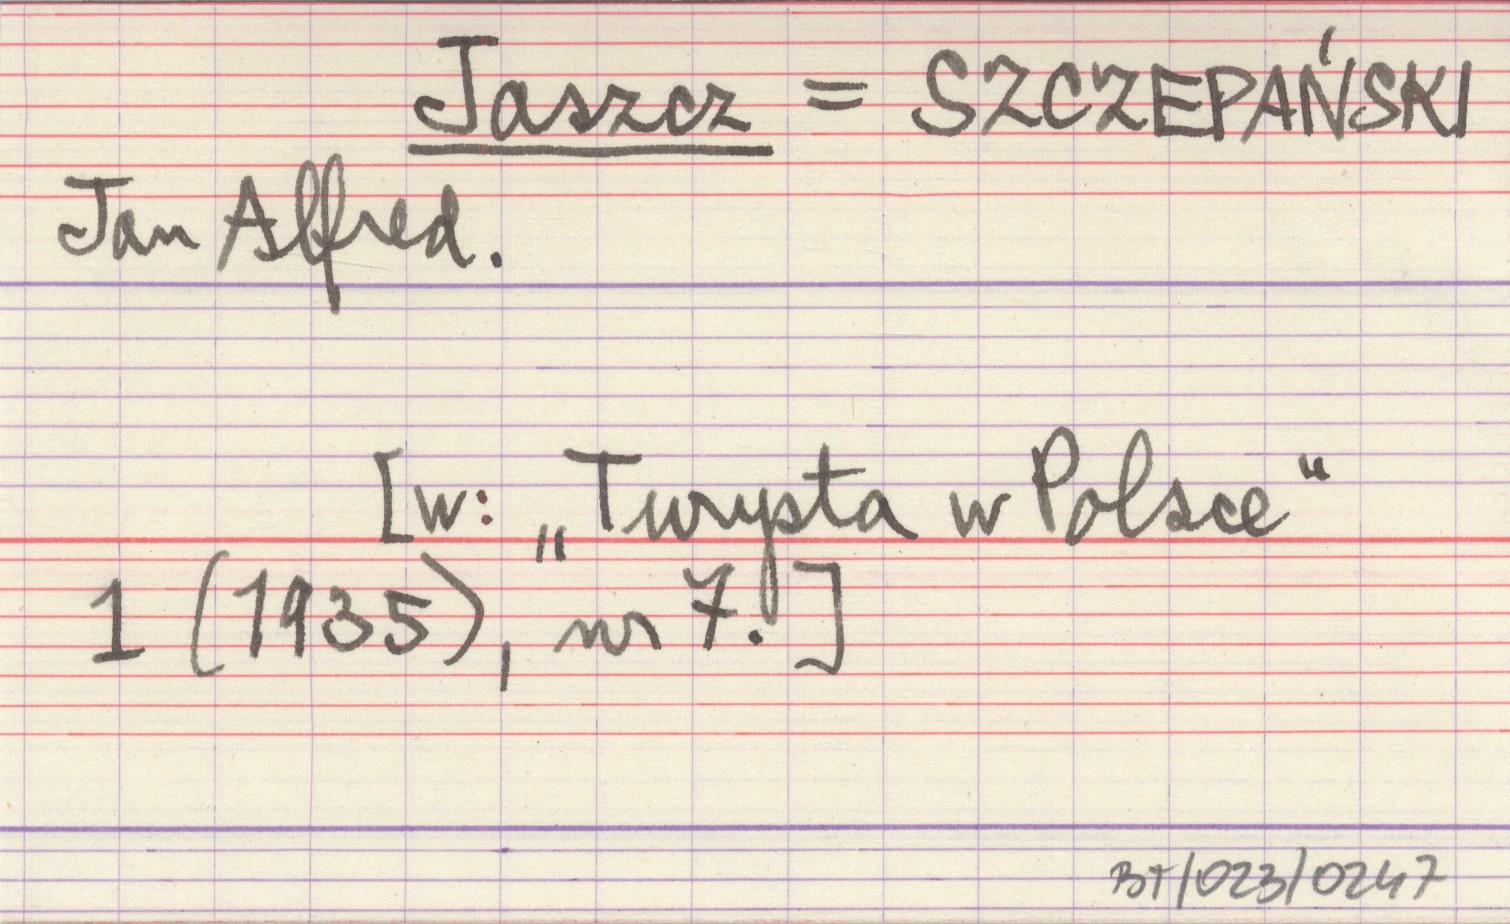 Jaszcz = SZCZEPAŃSKI
Jan Alfred.
[w: „Turysta w Polsce“
1 (1935), nr 7.]
BT/023/0247